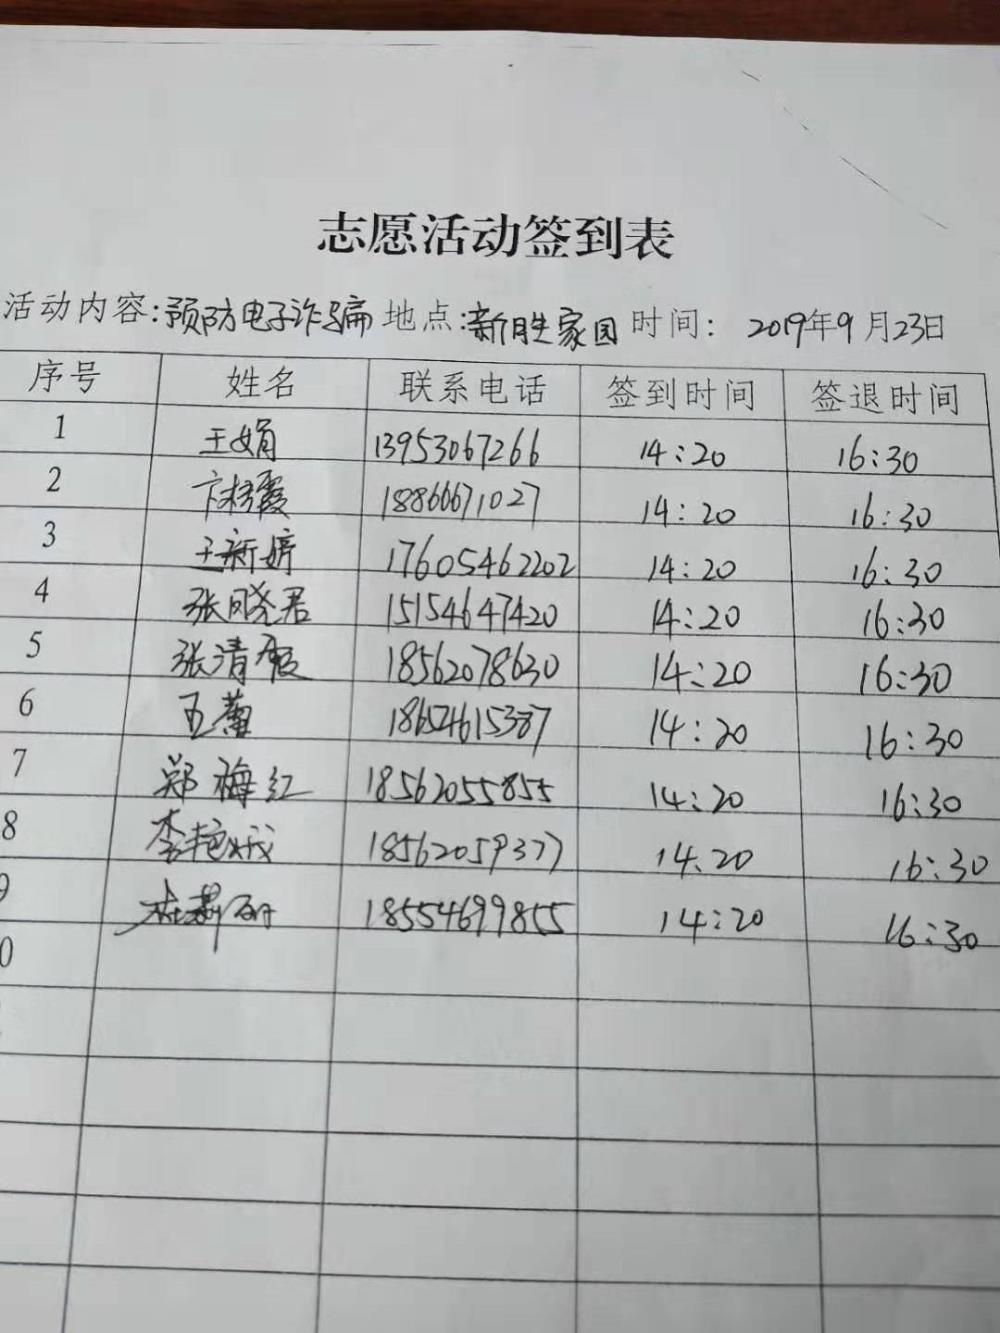 志愿活动签到表
活动内容:预防电子诈骗 地点:新胜家园 时间: 2019年9月23日
序号 姓名 联系电话 签到时间 签退时间
1 王娟 13953067266 14:20 16:30
2 卞杨霞 18866671027 14:20 16:30
3 王新婷 17605462202 14:20 16:30
4 张晓君 15154647420 14:20 16:30
5 张清霞 18562078630 14:20 16:30
6 王蕾 18654615387 14:20 16:30
7 郑梅红 18562055855 14:20 16:30
8 李艳娥 18562059377 14:20 16:30
9 18554699855 14:20 16:30
0